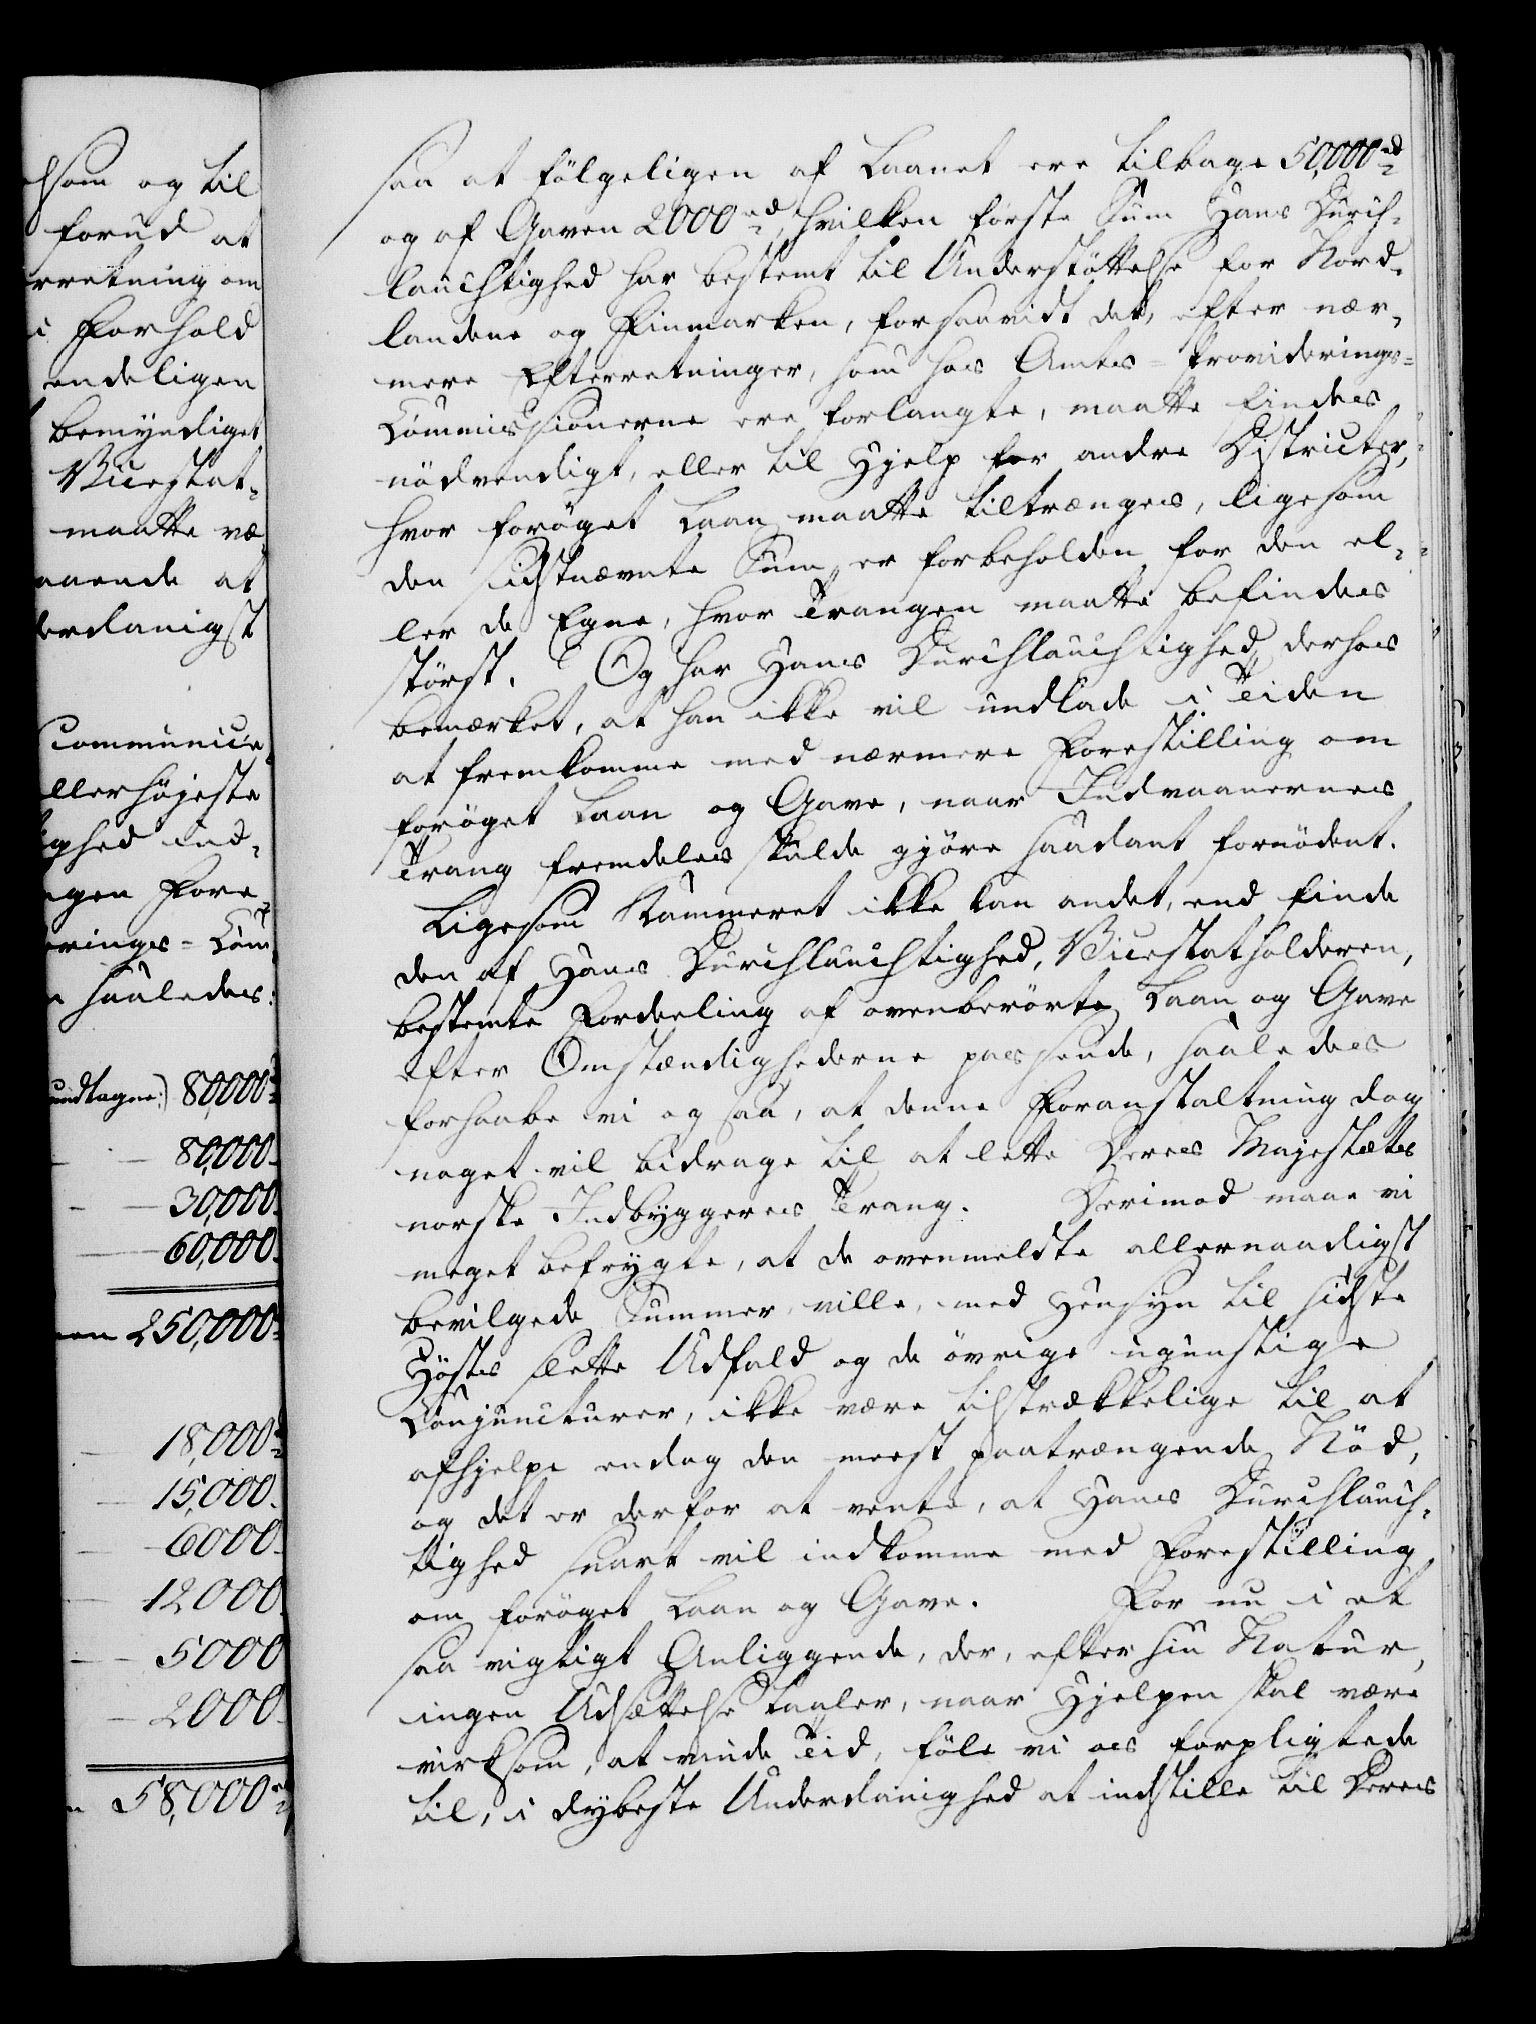 lsom og til
forud at
rretning om
i Forhold
endeligen
bemyndiget
Vicestat-
maatte væ
nende at
erdanigst
communice
llerhöjeste
ghed ind-
gen Fore-
eringes-Com
saaledes:
undtagne:) 80,000
80,000
30,000
60,000
250,000
18,000
15,000
6000
12000
5000
2000
58,000 rd
saa at fölgeligen af Laanet ere tilbage 50,000 rd
og af Gaven 2000 rd, hvilken förste Sum Hans Durch-
lauchtighed har bestemt til Understöttelse for Nord-
landene og Finmarken, forsaavidt det, efter nær-
mere Efterretninger, som hos Amts-Providerings-
Commissionerne ere forlangte, maatte findes
nödvendigt, eller til Hjelp for andre Districter,
hvor foröget Laan maatte tiltrænges, ligesom
den sidstnævnte Sum er forbeholden for den el-
ler de Egne, hvor Trangen maatte befindes
störst. Og har Hans Durchlauchtighed derhos
bemærket, at han ikke vil undlade i Tiden
at fremkomme med nærmere Forestilling om
foröget Laan og Gave, naar Indvaanernes
Trang fremdeles skulde gjöre saadant fornödent.
Ligesom Kammeret ikke kan andet, end finde
den af Hans Durchlauchtighed, Vicestatholderen,
bestemte Fordeeling af ovenberörte Laan og Gave
efter Omstændighederne passende, saaledes
forhaabe vi og saa, at denne Foranstaltning dog
noget vil bidrage til at lette Deres Majestæts
norske Indbyggeres Trang. Derimod maae vi
meget befrygte, at de ovenmeldte allernaadigst
bevilgede Summer ville, med Hensyn til sidste
Hösts slette Udfald og de övrige ugunstige
Conjuncturer, ikke være tilstrækkelige til at
afhjelpe endog den meest paatrængende Nöd,
og det er derfor at vente, at Hans Durchlauch-
tighed snart vil indkomme med Forestilling
om foröget Laan og Gave. For nu i et
saa vigtigt Anliggende, der, efter sin Natur,
ingen Udsættelse taaler, naar Hjelpen skal være
virksom, at vinde Tid, föle vi os forpligtede
til, i dybeste Underdanighed at indstille til Deres